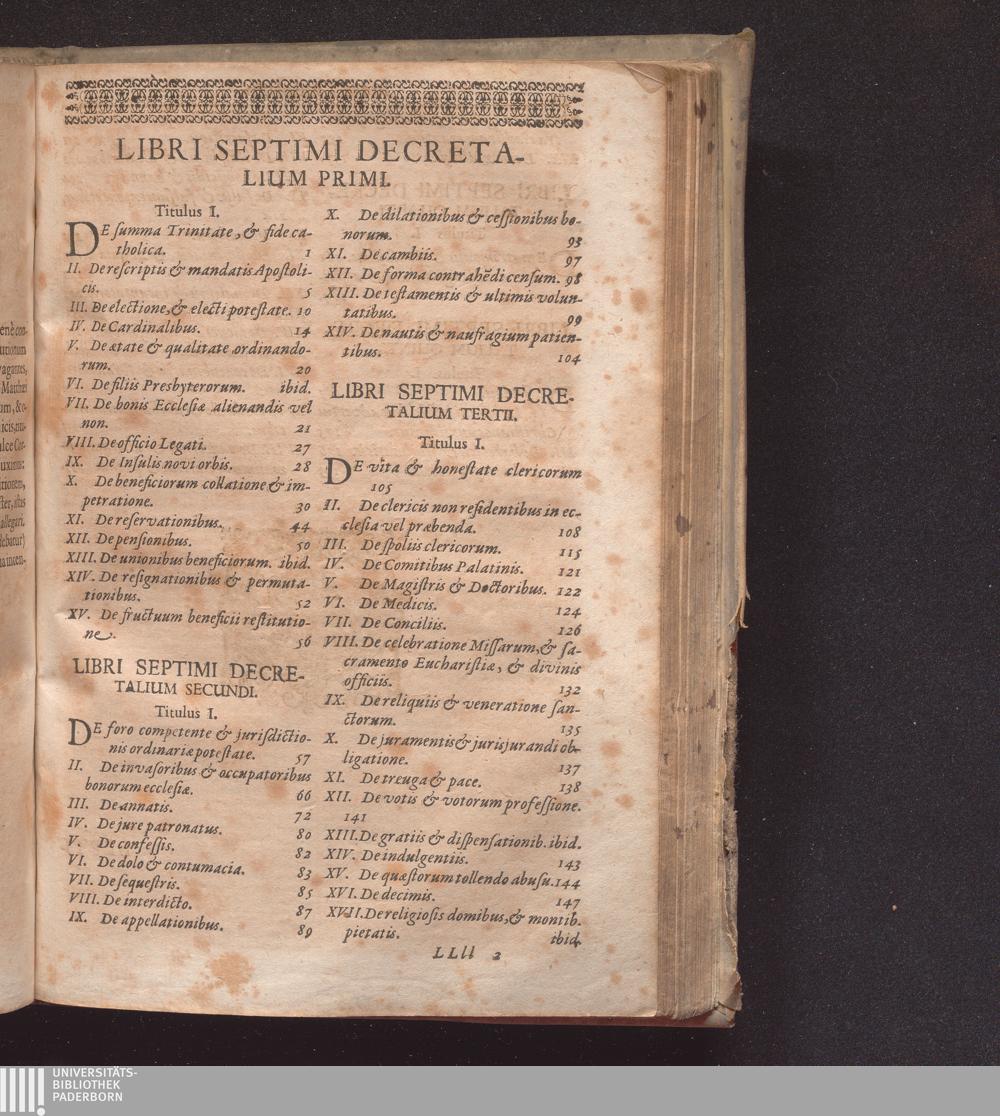 LIBRI SEPTIMI DECRETA-
LIUM PRIMI.
Titulus I.
DE summa Trinitate, & fide ca-
tholica. 1
II. De rescriptis & mandatis Apostoli-
cis. 5
III. De electione, & electi potestate. 10
IV. De Cardinalibus. 14
V. De ætate & qualitate ordinando-
rum. 20
VI. De filiis Presbyterorum. ibid.
VII. De bonis Ecclesiæ alienandis vel
non. 21
VIII. De officio Legati. 27
IX. De Insulis novi orbis. 28
X. De beneficiorum collatione & im-
petratione. 30
XI. De reservationibus. 44
XII. De pensionibus. 50
XIII. De unionibus beneficiorum. ibid.
XIV. De resignationibus & permuta-
tionibus. 52
XV. De fructuum beneficii restitutio-
ne. 56
LIBRI SEPTIMI DECRE-
TALIUM SECUNDI.
Titulus I.
DE foro competente & jurisdictio-
nis ordinariæ potestate. 57
II. De invasoribus & occupatoribus
bonorum ecclesiæ. 66
III. De annatis. 72
IV. De jure patronatus. 80
V. De confessis. 82
VI. De dolo & contumacia. 83
VII. De sequestris. 85
VIII. De interdicto. 87
IX. De appellationibus. 89
X. De dilationibus & cessionibus bo-
norum. 93
XI. De cambiis. 97
XII. De forma contrahēdi censum. 98
XIII. De testamentis & ultimis volun-
tatibus. 99
XIV. De nautis & naufragium patien-
tibus. 104
LIBRI SEPTIMI DECRE-
TALIUM TERTII.
Titulus I.
DE vita & honestate clericorum
105
II. De clericis non residentibus in ec-
clesia vel præbenda. 108
III. De spoliis clericorum. 115
IV. De Comitibus Palatinis. 121
V. De Magistris & Doctoribus. 122
VI. De Medicis. 124
VII. De Conciliis. 126
VIII. De celebratione Missarum, & sa-
cramento Eucharistiæ, & divinis
officiis. 132
IX. De reliquiis & veneratione san-
ctorum. 135
X. De juramentis & jurisjurandi ob-
ligatione. 137
XI. De treuga & pace. 138
XII. De votis & votorum professione.
141
XIII. De gratiis & dispensationib. ibid.
XIV. De indulgentiis. 143
XV. De quæstorum tollendo abusu. 144
XVI. De decimis. 147
XVII. De religiosis domibus, & montib.
pietatis. ibid.
LLll 2
UNIVERSITÄTS-
BIBLIOTHEK
PADERBORN